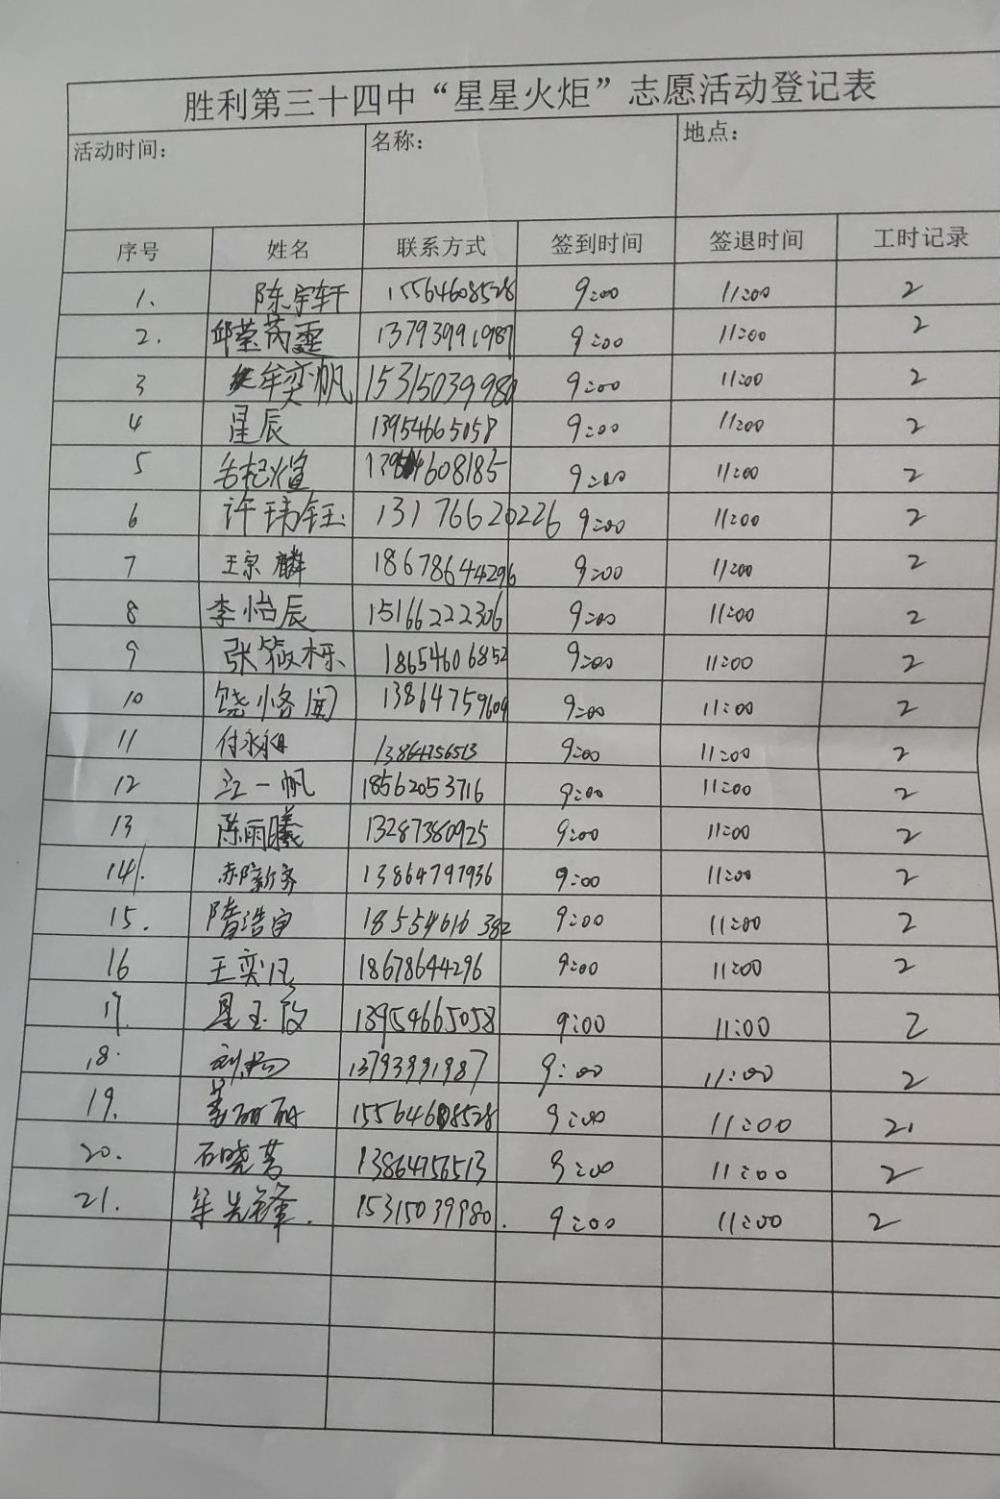 胜利第三十四中“星星火炬”志愿活动登记表
活动时间： 名称： 地点：
序号 姓名 联系方式 签到时间 签退时间 工时记录
1. 陈宇轩 15564608528 9:00 11:00 2
2. 邱莹芮霆 13793991987 9:00 11:00 2
3 牟奕帆 15315039980 9:00 11:00 2
4 星辰 13954665058 9:00 11:00 2
5 608185 9:00 11:00 2
6 许玮钰 13176620226 9:00 11:00 2
7 王宗麟 18678644296 9:00 11:00 2
8 李怡辰 15166222306 9:00 11:00 2
9 张筱栎 18654606852 9:00 11:00 2
10 饶恪闻 13864759609 9:00 11:00 2
11 付永翔 13864756513 9:00 11:00 2
12 江一帆 18562053716 9:00 11:00 2
13 陈雨曦 13287380925 9:00 11:00 2
14. 13864797936 9:00 11:00 2
15. 隋浩宇 18554610382 9:00 11:00 2
16 王奕凡 18678644296 9:00 11:00 2
17. 星玉 13954665058 9:00 11:00 2
18. 刘杨 13793991987 9:00 11:00 2
19. 姜丽丽 15564608528 9:00 11:00 2
20. 石晓芳 13864756513 9:00 11:00 2
21. 牟先锋. 15315039980. 9:00 11:00 2